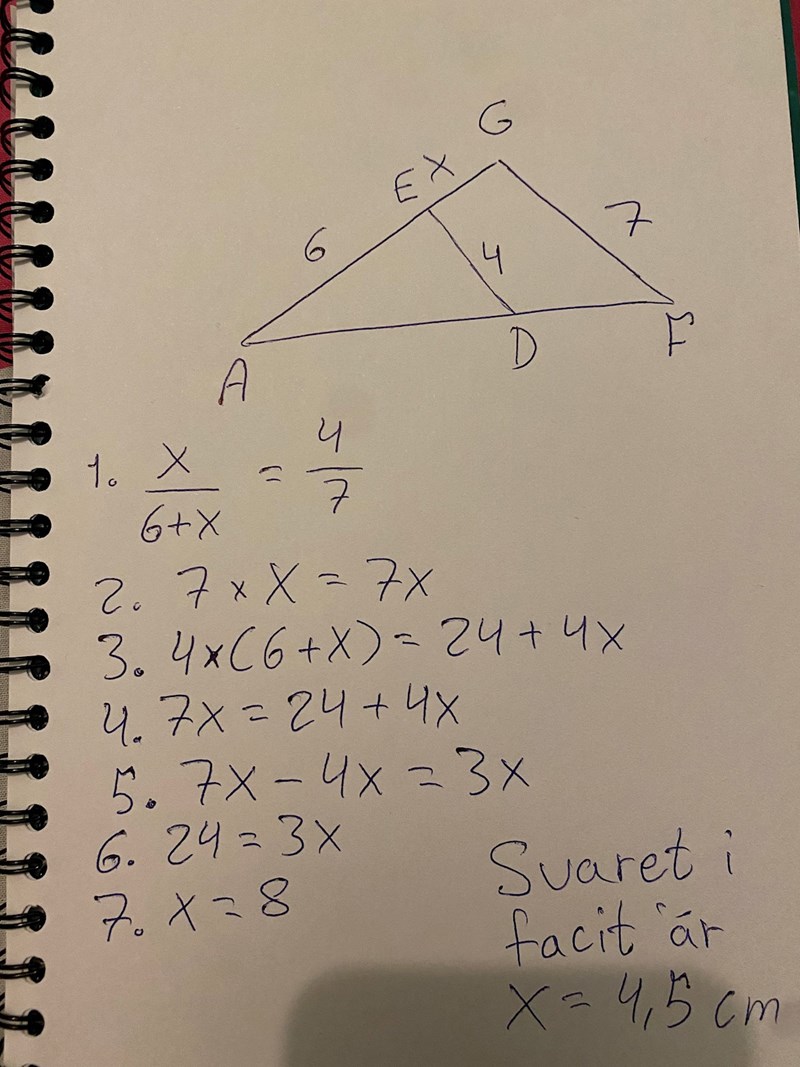 G
E x
6
4
7
A
D
F
1. x/(6+x) = 4/7
2. 7 × x = 7x
3. 4×(6+x) = 24 + 4x
4. 7x = 24 + 4x
5. 7x - 4x = 3x
6. 24 = 3x
7. x = 8
Svaret i
facit är
x = 4,5 cm